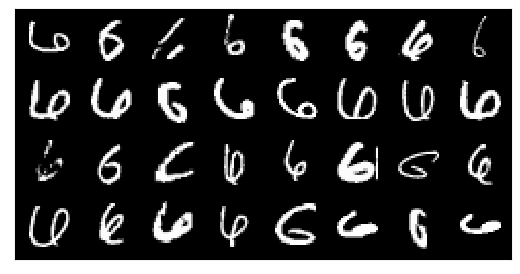 6 6 6 6 6 6 6
6 6 6 6 6 6 6 6
6 6 6 6 6 6 6
6 6 6 6 6 6 6 6